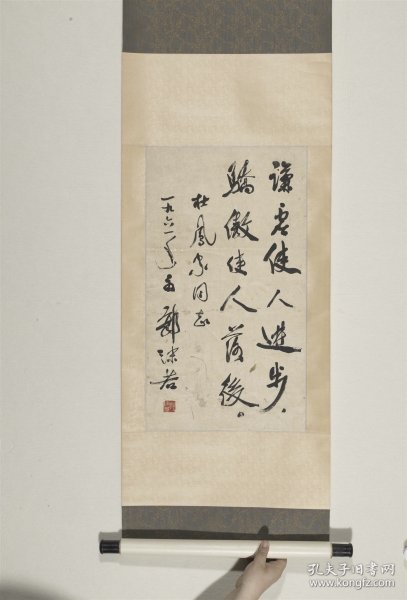 謙虚使人進步。
驕傲使人落後。
杜鳳家同志
一九六一年
郭沫若
孔夫子旧书网
www.kongfz.com